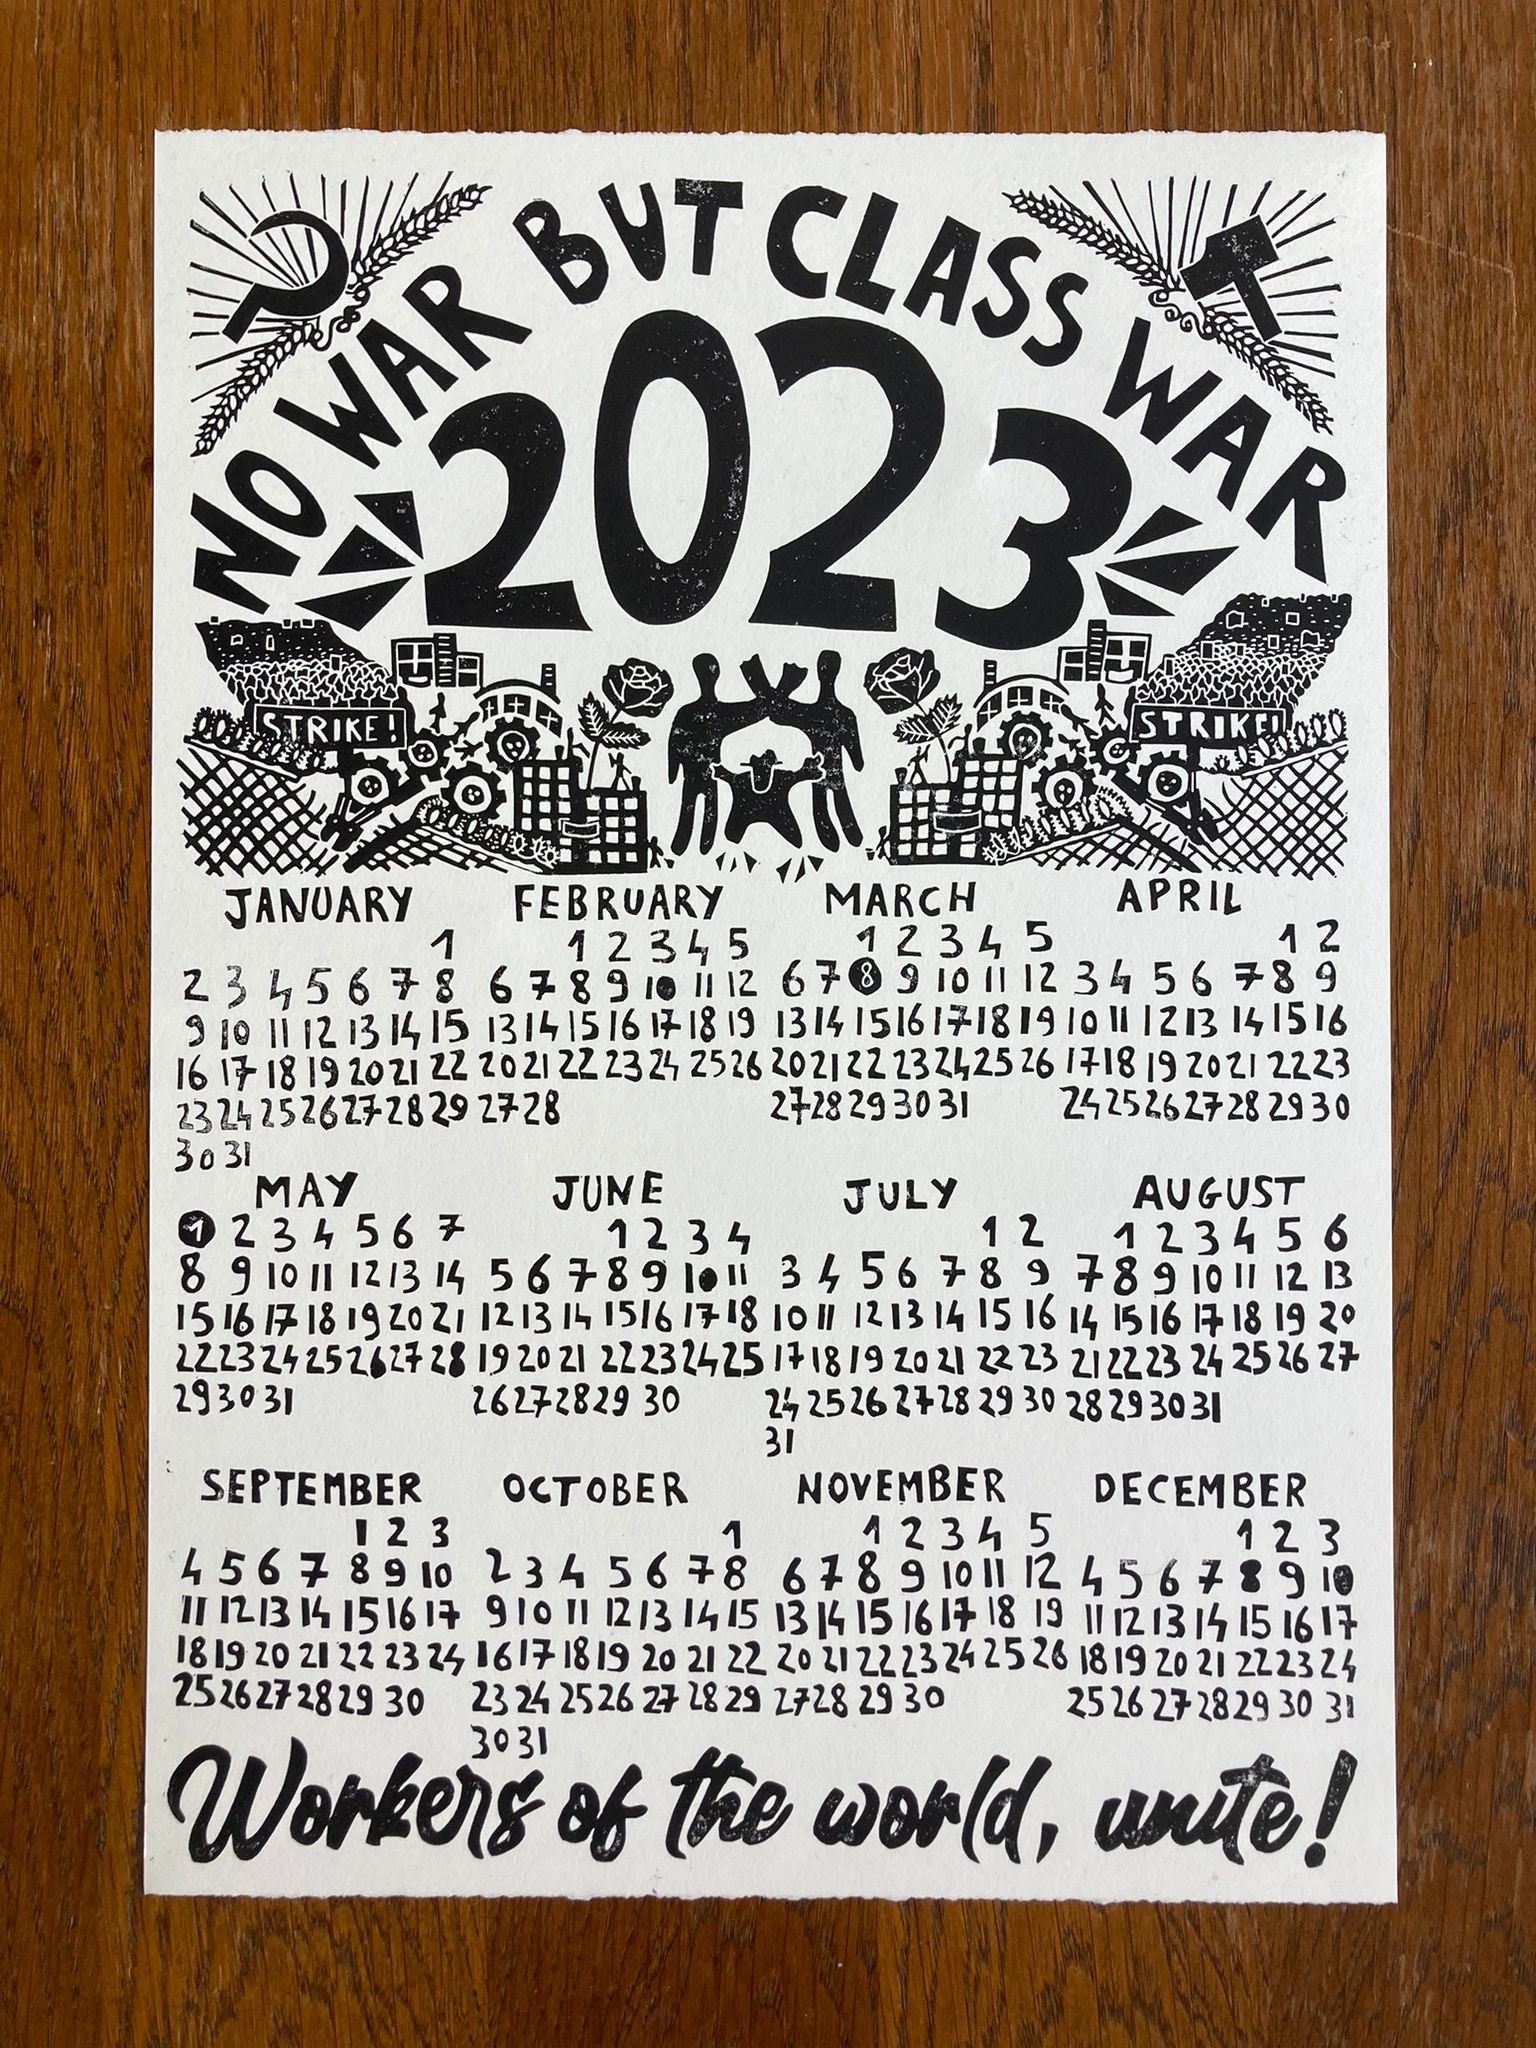 NO WAR BUT CLASS WAR
2023
STRIKE! STRIKE!
JANUARY FEBRUARY MARCH APRIL
1 1 2 3 4 5 1 2 3 4 5 1 2
2 3 4 5 6 7 8 6 7 8 9 10 11 12 6 7 8 9 10 11 12 3 4 5 6 7 8 9
9 10 11 12 13 14 15 13 14 15 16 17 18 19 13 14 15 16 17 18 19 10 11 12 13 14 15 16
16 17 18 19 20 21 22 20 21 22 23 24 25 26 20 21 22 23 24 25 26 17 18 19 20 21 22 23
23 24 25 26 27 28 29 27 28 27 28 29 30 31 24 25 26 27 28 29 30
30 31
MAY JUNE JULY AUGUST
1 2 3 4 5 6 7 1 2 3 4 1 2 1 2 3 4 5 6
8 9 10 11 12 13 14 5 6 7 8 9 10 11 3 4 5 6 7 8 9 7 8 9 10 11 12 13
15 16 17 18 19 20 21 12 13 14 15 16 17 18 10 11 12 13 14 15 16 14 15 16 17 18 19 20
22 23 24 25 26 27 28 19 20 21 22 23 24 25 17 18 19 20 21 22 23 21 22 23 24 25 26 27
29 30 31 26 27 28 29 30 24 25 26 27 28 29 30 28 29 30 31
31
SEPTEMBER OCTOBER NOVEMBER DECEMBER
1 2 3 1 1 2 3 4 5 1 2 3
4 5 6 7 8 9 10 2 3 4 5 6 7 8 6 7 8 9 10 11 12 4 5 6 7 8 9 10
11 12 13 14 15 16 17 9 10 11 12 13 14 15 13 14 15 16 17 18 19 11 12 13 14 15 16 17
18 19 20 21 22 23 24 16 17 18 19 20 21 22 20 21 22 23 24 25 26 18 19 20 21 22 23 24
25 26 27 28 29 30 23 24 25 26 27 28 29 27 28 29 30 25 26 27 28 29 30 31
30 31
Workers of the world, unite!